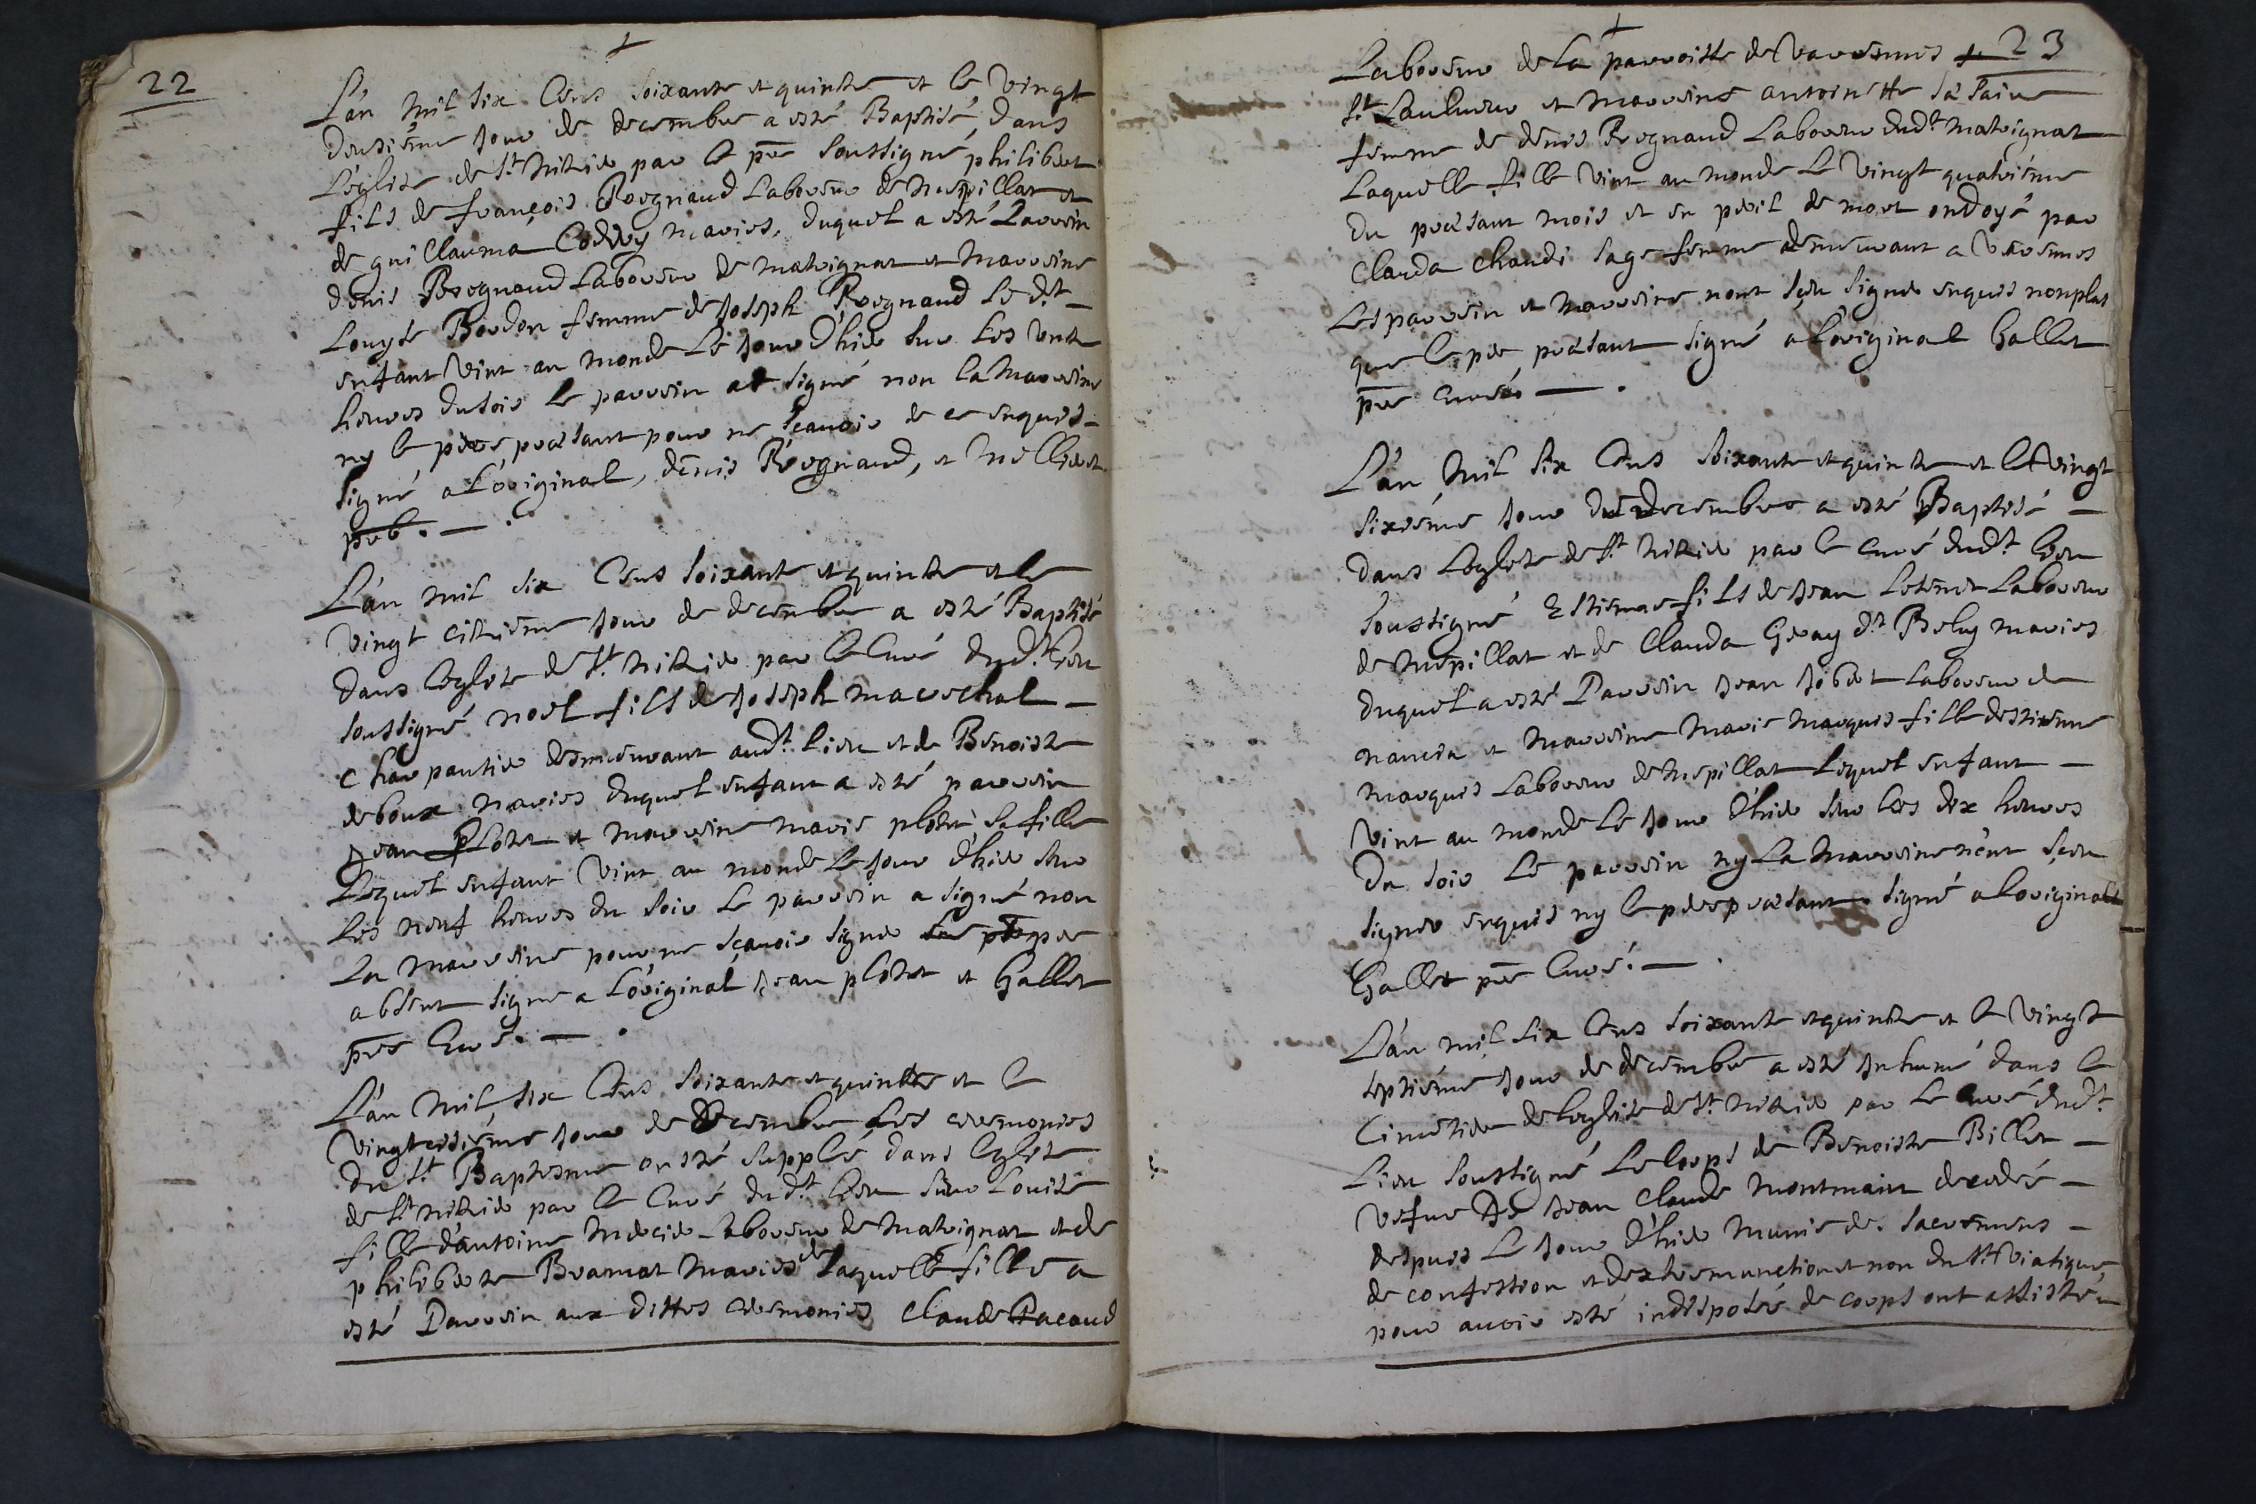 22
L'an mil six Cens soixante et quinze et le vingt
deusiéme jour de decembre a esté Baptisé, dans
L'église de St. Nizier par le pre soussigné, philibert
fils de françois Broegnaud Laboureur de Nespillat et
de guillauma Coddoy maries, duquel a esté Parrein
denis Broegnaud Laboureur de Malvignat et Marreine
Louyse Bordon femme de Joseph Broegnaud Le dt.
enfant Vint au monde Le jour d'hier sur Les onze
heures du soir le parrein at signé non la Marreine
ny le pere present pour ne sçavoir de ce enquis
signé a L'original, denis Broegnaud, et Mellieret
preb.
L'an mil six Cens soixante et quinze et le
Vingt cinqieme jour de decembre a esté Baptisé
dans leglize de St. Nizier par le Curé dudt. lieu
soussigné noel fils de Joseph mareschal
charpantier demeurant audt. lieu et de Benoiste
deboux maries duquel enfant a esté parrein
Jean Plotet et marreine marie plotet, sa fille
Lequel enfant Vint au monde Le jour d'hier sur
Les neuf heures du soir Le parrein a signé non
La marreine pour ne sçavoir signer le pere
absent signe a L'original Jean plotet et Gallet
pre Curé.
L'an mil six Cens soixante et quinze et le
vingtcisiéme jour de Decembre Les ceremonies
du St. Baptesme on sté supplé, dans leglize
de St. nizier par le Curé dudt. lieu sur Louise
fille d'antoine Mercier laboureur de Malvignat et de
philiberte Bramat maries de laquelle fille a
esté Parrein aux dittes ceremonies Claude Pacaud
23
Laboureur de la parroisse de Varesnnes
St. Sauveur et marreine antoinette La Faive
femme de denis Broegnaud Laboureur dudt. Malvignat
Laquelle fille vint au monde Le vingt quatriéme
du presant mois et en peril de mort ondoyé par
Clauda Chaudi sage femme demeurant a Varesnnes
Les parrein et marreine nont sçeu signer enquis nonplus
que le pere presant signé a L'original Gallet
pre Curé.
L'an mil six Cens soixante et quinze et le vingt
sixiéme jour de decembre a esté Baptisé
dans Leglize de St. Nizier par le Curé dudt. lieu
soussigné Estienne fils de Jean Laboureur
de Nespillat et de Clauda Geray dt. Bely maries
duquel a esté Parrein Jean Jobert Laboureur de
et Marreine Marie Marquis fille destienne
Marquis Laboureur de Nespillat Lequel enfant
Vint au monde Le jour d'hier sur les dix heures
du soir Le parrein ny La marreine n'ent sçeu
signer enquis ny le pere presant signé a Loriginal
Gallet pre Curé.
L'an mil six Cens soixante et quinze et le vingt
septiéme jour de decembre a esté Inhumé dans le
Cimetiere de leglize de St. Nizier par Le Curé dudt.
Lieu soussigné Le Corps de Benoiste Billet
vefue De Jean Claude Montmain decedée
despuis Le jour d'hier munie de. Sacremens
de confession et dextresmunction et non du St. Viatique
pour avoir esté indisposée de corps ont assisté